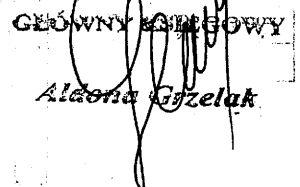 GŁÓWNY KSIĘGOWY
Aldona Grzelak